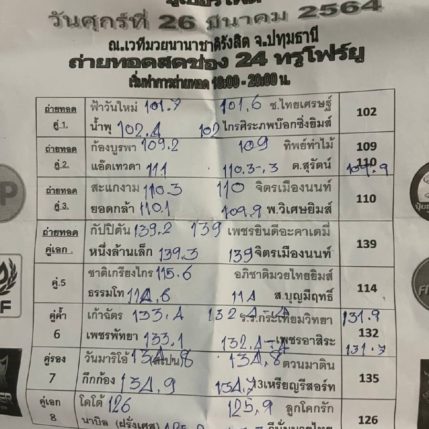 วันศุกร์ที่ 26 มีนาคม 2564
ณ.เวทีมวยนานาชาติรังสิต จ.ปทุมธานี
ถ่ายทอดสดช่อง 24 ทรูโฟร์ยู
เริ่มทำการถ่ายทอด 18:00 - 20:00 น.
ถ่ายทอด ฟ้าวันใหม่ 101.7 101.6 ช.ไทยเศรษฐ์ 102
คู่.1. น้ำพุ 102.4 102 ไกรศิระภพบ๊อกซิ่งยิมส์
ถ่ายทอด ก้องบูรพา 109.2 109 ทิพย์ท่าไม้ 109
คู่.2. แอ๊ดเทวดา 111 110.3-.3 ด.สุรัตน์ 110 109.9
ถ่ายทอด สะแกงาม 110.3 110 จิตรเมืองนนท์ 110
คู่.3. ยอดกล้า 110.1 109.9 พ.วิเศษยิมส์
ถ่ายทอด กัปปิตัน 139.2 139 เพชรยินดีอะคาเดมี่ 139
คู่เอก หนึ่งล้านเล็ก 139.3 139 จิตรเมืองนนท์
คู่.5 ชาติเกรียงไกร 115.6 อภิชาติมวยไทยยิมส์ 114
ธรรมโท 114.6 114 ส.บุญมีฤทธิ์
คู่ค้ำ เก้าฉัตร 133.4 132.4 ร.ร.กระเทียมวิทยา 131.9
6 เพชรพัทยา 133.1 132.4 เพชรอาสิระ 132 131.7
คู่รอง วันมาริโอ้ 134.8 (สเปน) 134.8 ตวนมาดิน
7 กึกก้อง 134.9 134.7 13เหรียญรีสอร์ท 135
คู่เอก โตโต้ 126 125.9 ลูกโคกรัก
8 นาบิล (ฝรั่งเศส) 126